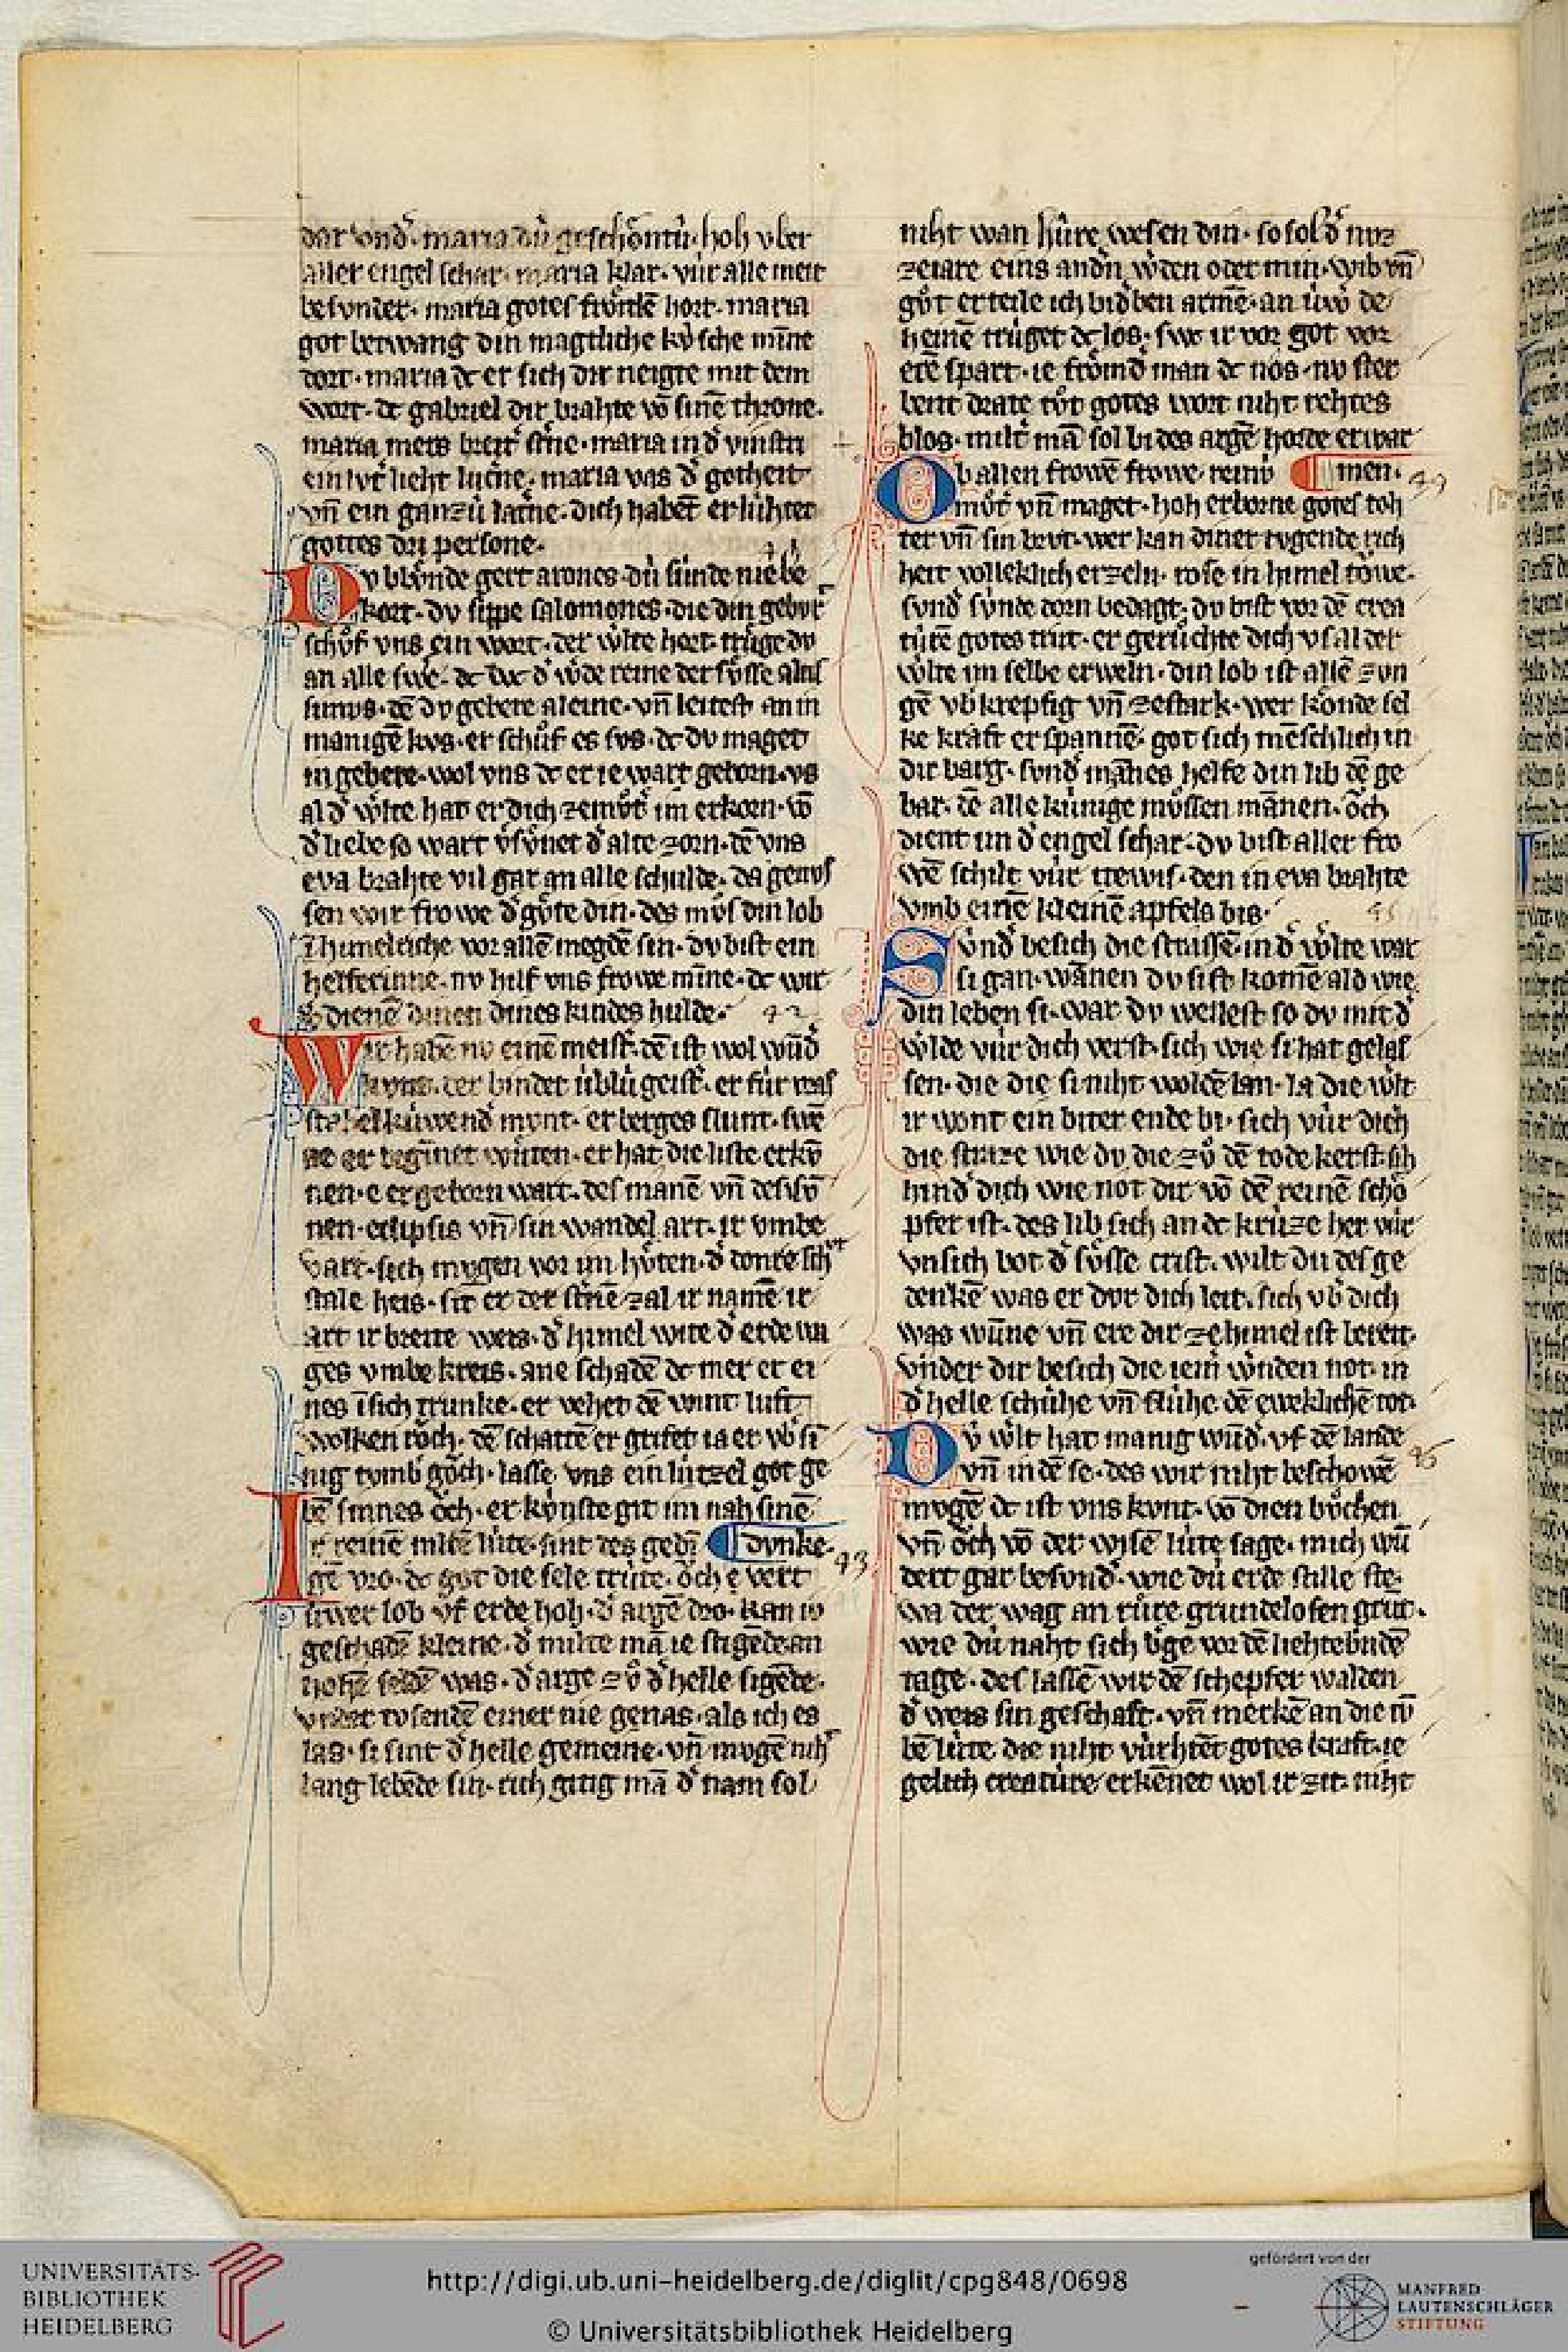 dar vnd᷎· maria dú geschöntú· hoh vber
aller engel schar· maria klar· vúr alle meit
besunder· maria gotes frönde̅ hort· maria
got betwang din magtliche kv́sche mi̅ne
dort· maria dc er sich dir neigte mit dem
wort· dc gabriel dir brahte vo̅ sine̅ throne·
maria mers breit᷎ st᷎ne· maria in d᷎ vinstri
ein lvt᷎ lieht lucerne· maria vas d᷎ gotheit
vn̅ ein ganzú lat᷎ne· dich habe̅t erlúhtet
gottes dri persone·
Dv blvͦnde gert arones· dú súnde nie be
kort· dv sippe salomones· die din gebvrt
schvͦf vns ein wort· der w᷎lte hort· trúge dv
an alle swe᷎· dc
simvs· de̅ dv gebere aleine· vn̅ leitest an in
manige̅ kvs· er schvͦf es svs· dc dv maget
in gebere· wol vns dc er ie wart geborn· vs
al d᷎ w᷎lte hat er dich zemvͦt᷎ im erkorn· vo̅
d᷎ liebe so wart v᷎svͦnet d᷎ alte zorn· de̅ vns
eva brahte vil gar an alle schulde· da genvs
sen wir frowe d᷎ gvͦte din· des mvͦs din lob
i̅ himelriche vor alle̅ megde̅ sin· dv bist ein
helferinne· nv hilf vns frowe mi̅ne· dc wir
v᷎diene̅ dinen dines kindes hulde· 42
Wir habe̅ nv eine̅ meist᷎· de̅ ist wol wu̅d᷎
kvnt· der bindet úblú geist᷎· er fúr vras
stahel kúwend᷎ mvnt· er berges slunt· swe̅
ne er begi̅net wüten· er hat die liste erkv̅
nen· e er geborn wart· des mane̅ vn̅ des sv̅
nen· eclipsis vn̅ sin wandel art· ir vmbe
vart· sich mvgen vor im hvͤten· d᷎ donre schvͥt
stale heis· sit er der st᷎ne̅ zal ir name̅ ir
art ir breite weis· d᷎ himel wite d᷎ erde u̅n
ges vmbe kreis· ane schade̅ dc mer er ei
nes i̅ sich trunke· er vehet de̅ wint luft
wolken röch· de̅ schatte̅ er grifet ia er v᷎b si
nig tvmb᷎ göch· lasse vns ein lútzel got ge
be̅ sinnes öch· er kvnste git im nah sine̅
Ir reine̅ milte̅ lúte· sint des gedi̅ ¶ dvnke· 43
ge̅ vro· dc gvt die sele trúte· öch e̩ vert
úwer lob vf erde hoh· d᷎ arge̅ dro· kan iv
geschade̅ kleine· d᷎ milte ma̅ ie stige̅de· an
hohe̅ selde̅ was· d᷎ arge zvͦ d᷎ helle sige̅de·
vnder tvsende̅ einer nie genas· als ich es
las· si sint d᷎ helle gemeine· vn̅ mvge̅ niht
lang lebe̅de sin· rich gitig ma̅ d᷎ nam sol
niht wan húre wesen din· so sol d᷎ nvz
zeiare eins and᷎n w᷎den oder min· wib vn̅
gvͦt erteile ich bid᷎ben arme̅· an úw᷎ de
heine̅ trúget dc los· swc ir vor got vor
ere̅ spart· ie frömd᷎ man dc nos· nv ster
bent drate tvͦt gotes wort niht rehtes
blos· milt᷎ ma̅ sol bi des arge̅ horde erwar
Ob allen frowe̅ frowe· reinú ¶ men· 44
mvͦt᷎ vn̅ maget· hoh erborne gotes toh
ter vn̅ sin brvt· wer kan diner tvgende rich
heit volleklich erzeln· rose in himel towe·
svnd᷎ súnde dorn bedagt· dv bist vor de̅ crea
túre̅ gotes trut· er gerüchte dich vs al der
w᷎lte im selbe erweln· din lob ist alle̅ zvn
ge̅ v᷎b kreftig vn̅ zestark· wer kónde sel
ke kraft er spanne̅· got sich me̅schlich in
dir barg· svnd᷎ ma̅nes helfe din lib de̅ ge
bar· de̅ alle kúnige mvͤssen ma̅nen· öch
dient im d᷎ engel schar· dv bist aller fro
we̅ schilt vúr itewis· den in eva brahte
vmb eine̅ kleine̅ apfels bis· 45
Svnd᷎ besich die strasse̅· in d᷎ w᷎lte war
si gan· wa̅nen dv sist kome̅ ald wie
din leben si· war dv wellest so dv mit d᷎
w᷎lde vúr dich verst· sich wie si hat gelas
sen· die die si niht wolde̅ lan· la die w᷎lt
ir wont ein bitter ende bi· sich vúr dich
die straze wie dv die zvͦ de̅ tode kerst· sih
hind᷎ dich wie not dir vo̅ de̅ reine̅ schö
pfer ist· des lib sich an dc krúze her vúr
vnsich bot d᷎ svͤsse crist· wilt du des ge
denke̅ was er dvr dich leit· sich v᷎b dich
was wu̅ne vn̅ ere dir ze himel ist bereit·
vnder dir besich die iem᷎ w᷎nden not· in
d᷎ helle schúhe vn̅ flúhe de̅ eweklische̅ tot·
Dv́ w᷎lt hat manig wu̅d᷎· vf de̅ lande 46
vn̅ in de̅ se· des wir niht beschowe̅
mvge̅ dc ist vns kvnt· vo̅ dien bvͤchen
vn̅ öch vo̅ der wise̅ lúte sage· mich wu̅
dert gar besund᷎· wie dú erde stille ste·
wa der wag an rúre grundelosen grunt·
wie dú naht sich b᷎ge vor de̅ liehtebernde̅
tage· des lasse̅ wir de̅ schepfer walden
d᷎ weis sin geschaft· vn̅ merke̅ an die tv̅
be̅ lúte die niht vúrhte̅t gotes kraft· ie
gelich creatúre erke̅net wol ir zit· niht
UNIVERSITÄTS-
BIBLIOTHEK
HEIDELBERG
http://digi.ub.uni-heidelberg.de/diglit/cpg848/0698
© Universitätsbibliothek Heidelberg
gefördert von der
MANFRED
LAUTENSCHLÄGER
STIFTUNG